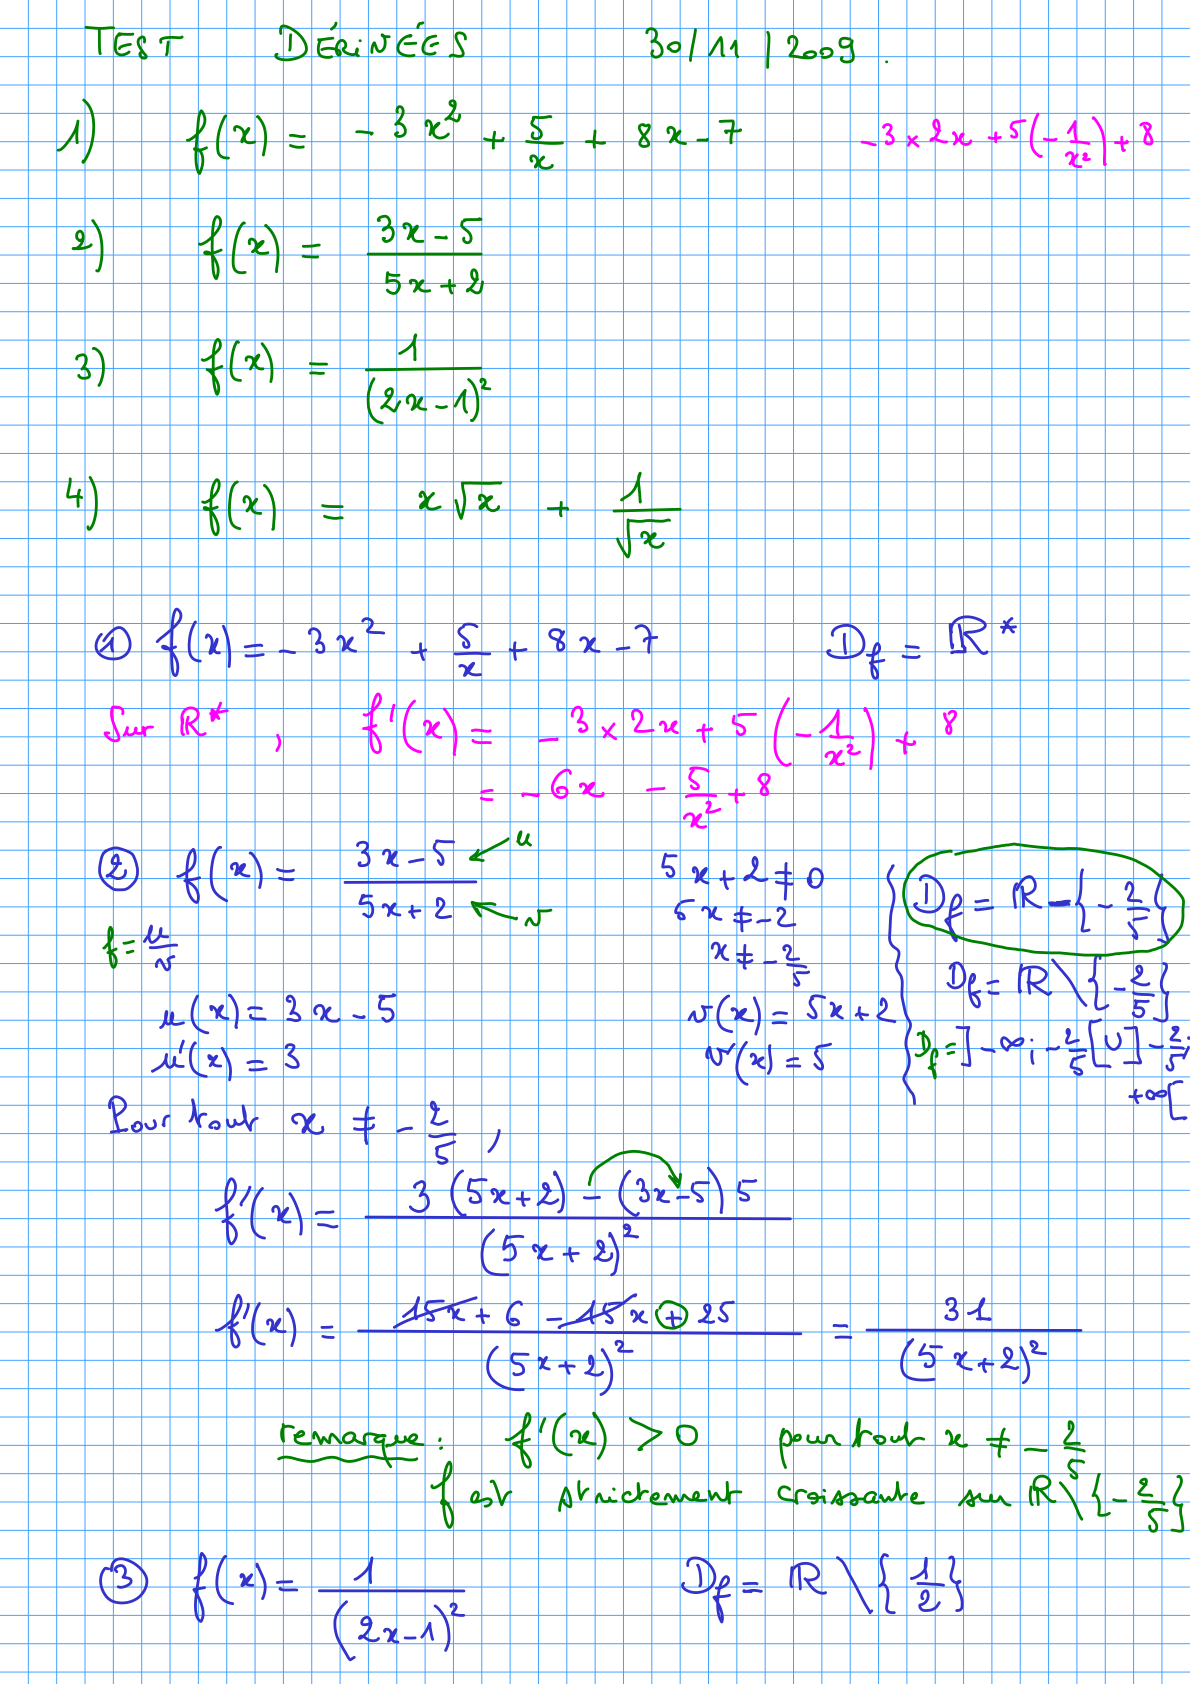 TEST DÉRIVÉES 30/11/2009.
1) f(x) = -3x² + 5/x + 8x - 7 -3×2x + 5(-1/x²) + 8
2) f(x) = (3x - 5)/(5x + 2)
3) f(x) = 1/(2x - 1)²
4) f(x) = x√x + 1/√x
① f(x) = -3x² + 5/x + 8x - 7 Df = ℝ*
Sur ℝ*, f'(x) = -3×2x + 5(-1/x²) + 8
= -6x - 5/x² + 8
② f(x) = (3x - 5)/(5x + 2) ← u ← v
f = u/v
5x + 2 ≠ 0
5x ≠ -2
x ≠ -2/5
Df = ℝ - {-2/5}
Df = ℝ \ {-2/5}
Df = ]-∞; -2/5[ ∪ ]-2/5; +∞[
u(x) = 3x - 5 v(x) = 5x + 2
u'(x) = 3 v'(x) = 5
Pour tout x ≠ -2/5,
f'(x) = (3(5x + 2) - (3x - 5)5)/(5x + 2)²
f'(x) = (15x + 6 - 15x + 25)/(5x + 2)² = 31/(5x + 2)²
remarque : f'(x) > 0 pour tout x ≠ -2/5
f est strictement croissante sur ℝ \ {-2/5}
③ f(x) = 1/(2x - 1)² Df = ℝ \ {1/2}